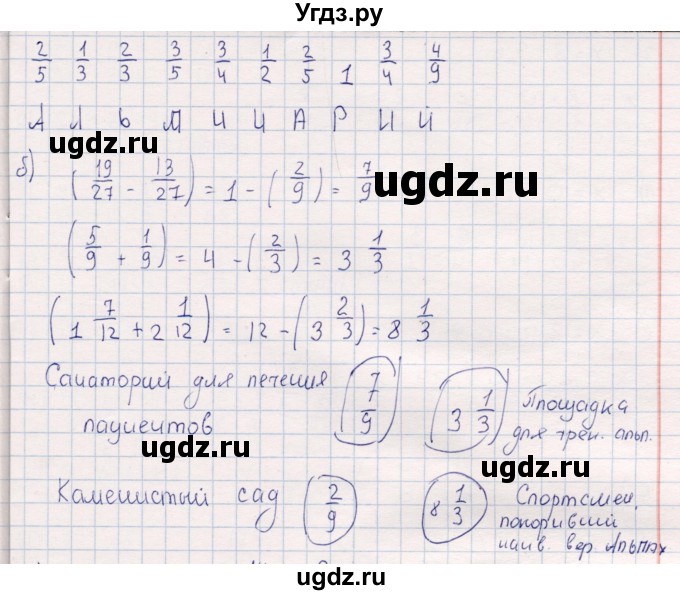 Угдз.ру
2/5 1/3 2/3 3/5 3/4 1/2 2/5 1 3/4 4/9
А Л Ь П И Н А Р И Й
ugdz.ru ugdz.ru
б) (19/27 - 13/27) = 1 - (2/9) = 7/9
ugdz.ru
(5/9 + 1/9) = 4 - (2/3) = 3 1/3
(1 7/12 + 2 1/12) = 12 - (3 2/3) = 8 1/3
Санаторий для лечения
пациентов
7 7/9
3 1/3
Площадка
для трен. альп.
ugdz.ru ugdz.ru
Каменистый сад 2/9
8 1/3 Спортсмен,
покоривший
наив. вер. Альпах
ugdz.ru